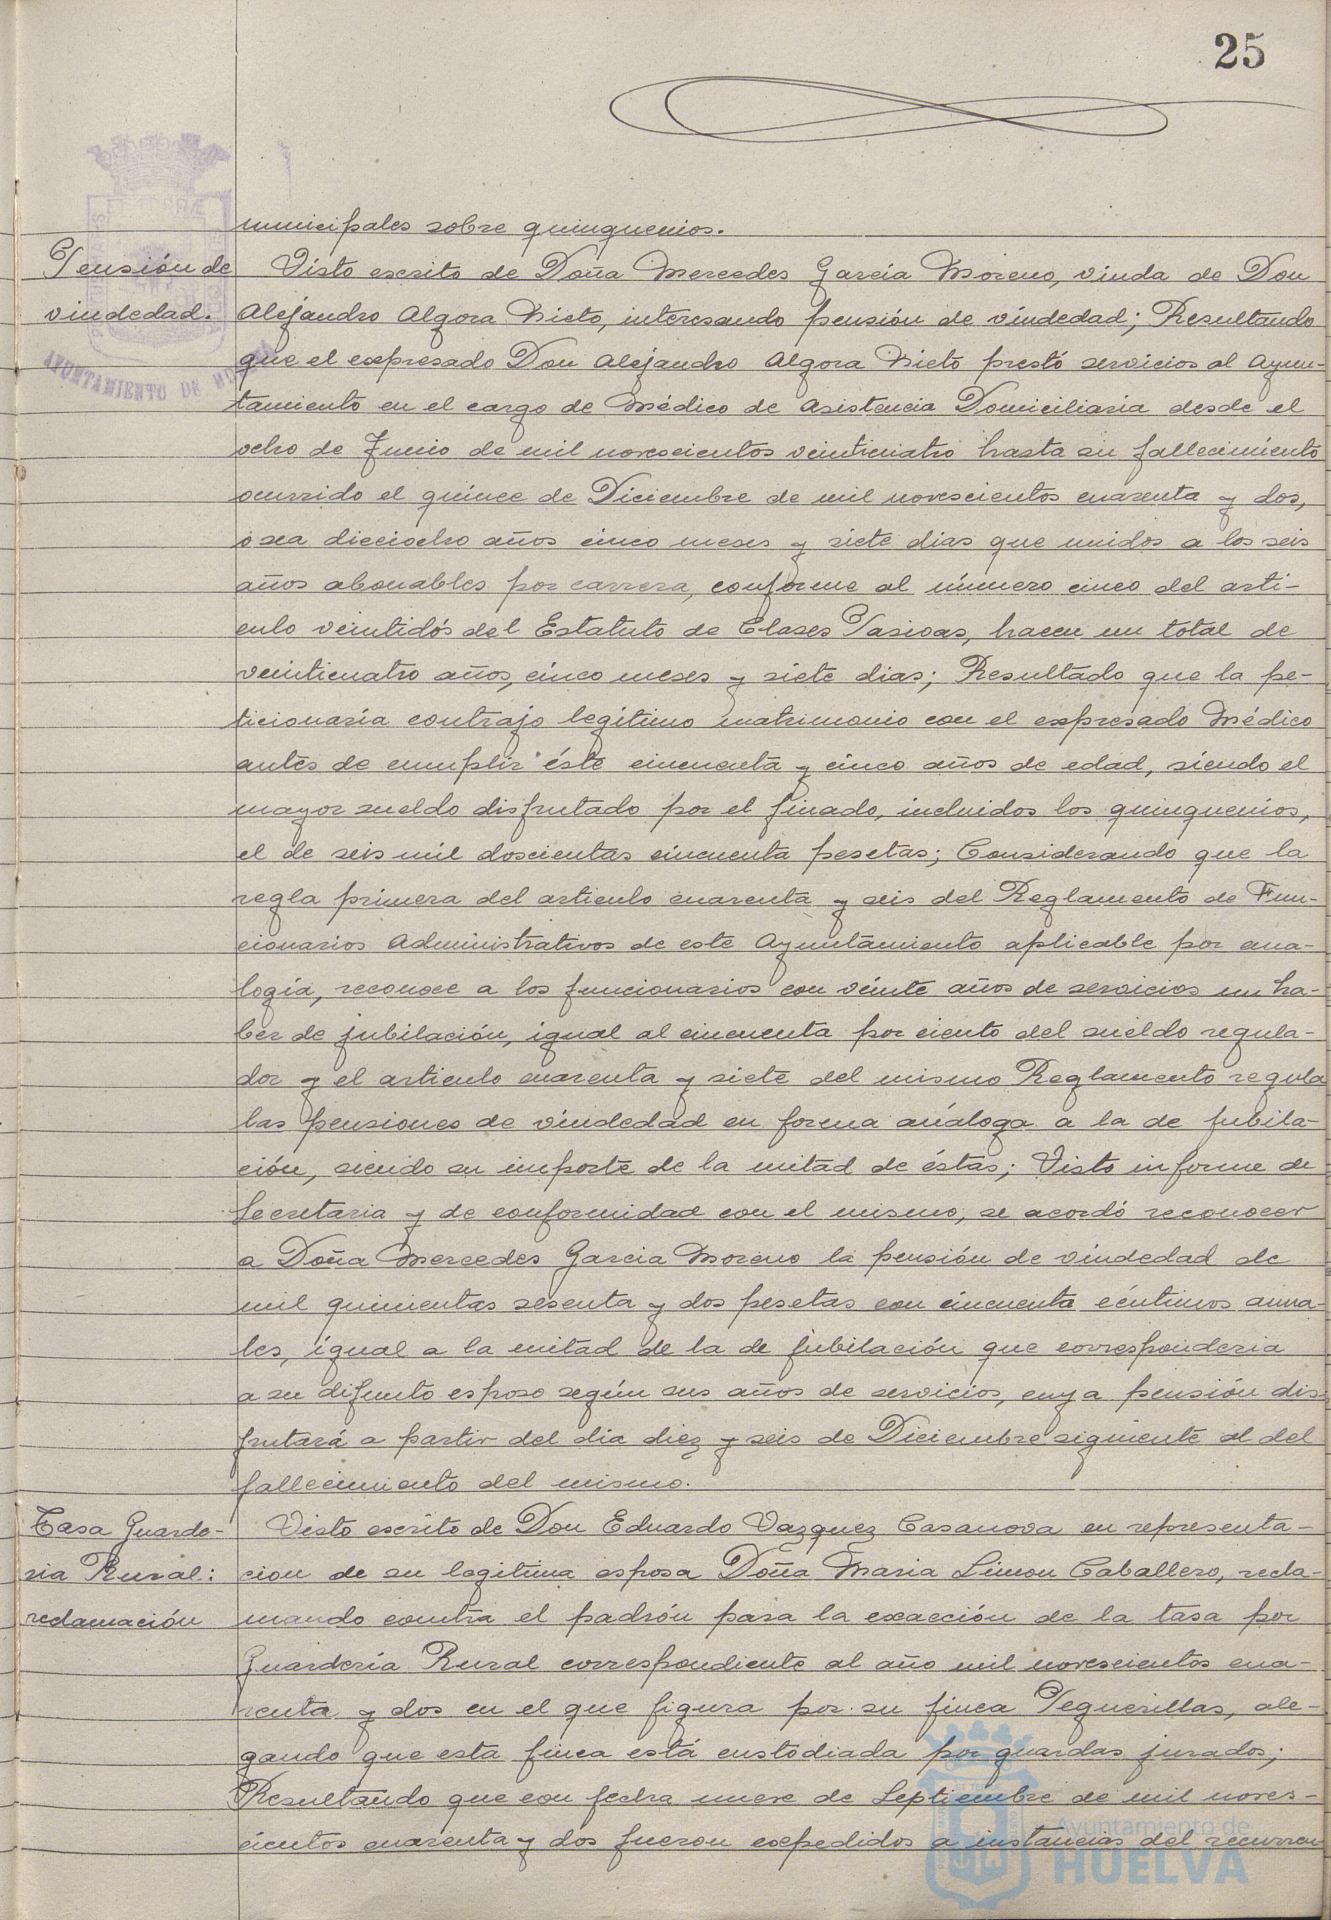 25
municipales sobre quinquenios.
Pensión de
viudedad.
Visto escrito de Doña Mercedes García Moreno, viuda de Don
Alejandro Algora Nieto, interesando pensión de viudedad; Resultando
que el expresado Don Alejandro Algora Nieto prestó servicios al Ayun-
tamiento en el cargo de Médico de Asistencia Domiciliaria desde el
ocho de Junio de mil novescientos veinticuatro hasta su fallecimiento
ocurrido el quince de Diciembre de mil novescientos cuarenta y dos,
o sea dieciocho años cinco meses y siete dias que unidos a los seis
años abonables por carrera, conforme al número cinco del arti-
culo veintidós del Estatuto de Clases Pasivas, hacen un total de
veinticuatro años, cinco meses y siete dias; Resultado que la pe-
ticionaria contrajo legítimo matrimonio con el expresado Médico
antes de cumplir éste cincuenta y cinco años de edad, siendo el
mayor sueldo disfrutado por el finado, incluidos los quinquenios,
el de seis mil doscientas cincuenta pesetas; Considerando que la
regla primera del articulo cuarenta y seis del Reglamento de Fun-
cionarios Administrativos de este Ayuntamiento aplicable por ana-
logía, reconoce a los funcionarios con veinte años de servicios un ha-
ber de jubilación, igual al cincuenta por ciento del sueldo regula-
dor y el articulo cuarenta y siete del mismo Reglamento regula
las pensiones de viudedad en forma análoga a la de jubila-
ción, siendo su importe de la mitad de éstas; Visto informe de
Secretaria y de conformidad con el mismo, se acordó reconocer
a Doña Mercedes Garcia Moreno la pensión de viudedad de
mil quinientas sesenta y dos pesetas con cincuenta céntimos anua-
les, igual a la mitad de la de jubilación que corresponderia
a su difunto esposo según sus años de servicios, cuya pensión dis-
frutará a partir del dia diez y seis de Diciembre siguiente al del
fallecimiento del mismo.
Tasa Guarde-
ria Rural:
reclamación
Visto escrito de Don Eduardo Vazquez Casanova en representa-
cion de su legitima esposa Doña Maria Limon Caballero, recla-
mando contra el padrón para la exacción de la tasa por
Guardería Rural correspondiente al año mil novescientos cua-
renta y dos en el que figura por su finca Peguerillas, ale-
gando que esta finca está custodiada por guardas jurados;
Resultando que con fecha nueve de Septiembre de mil noves-
cientos cuarenta y dos fueron expedidos a instancias del recurren
AYUNTAMIENTO DE HUELVA
Ayuntamiento de
HUELVA